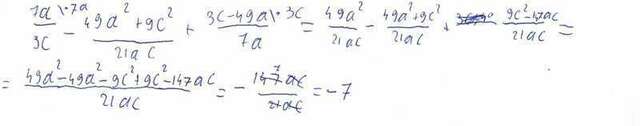 7a\·7a/3c - (49a²+9c²)/21ac + (3c-49a\·3c)/7a = 49a²/21ac - (49a²+9c²)/21ac + (9c²-147ac)/21ac =
= (49a²-49a²-9c²+9c²-147ac)/21ac = - 147ac/21ac = -7